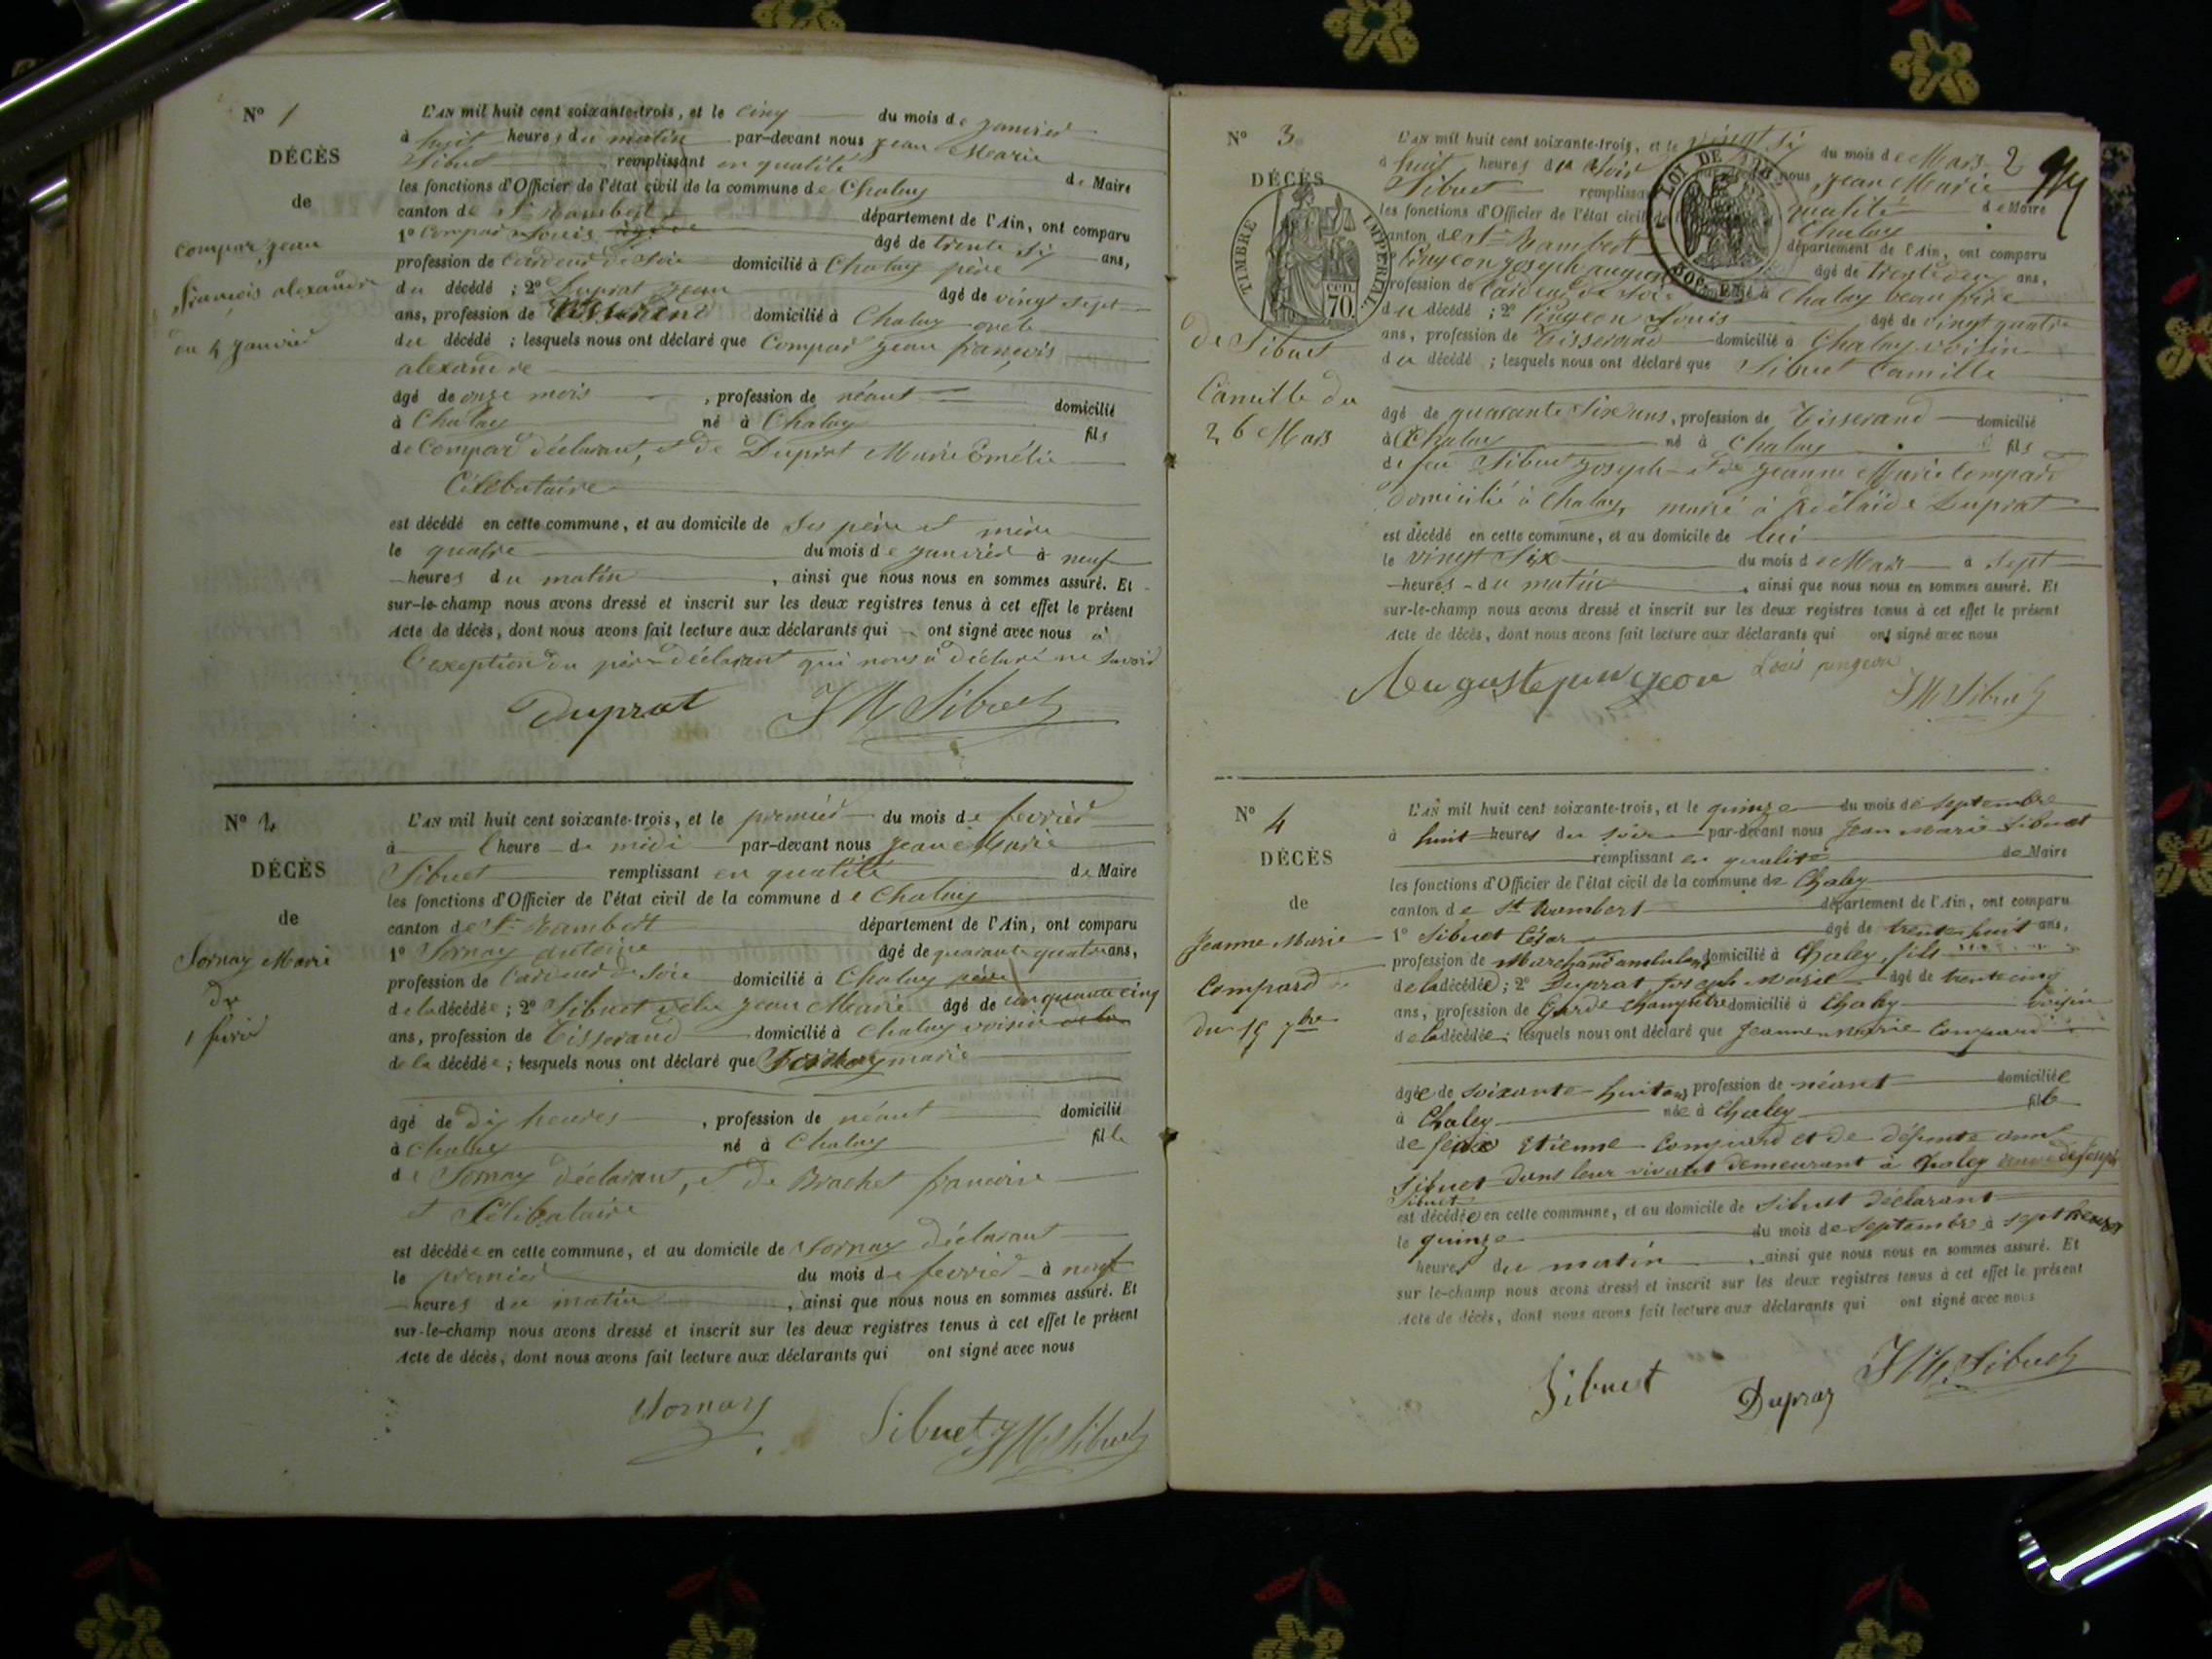 N° 1
DÉCÈS
de
Compar Jean
françois alexandre
du 4 janvier
L'AN mil huit cent soixante-trois, et le cinq du mois de janvier
à huit heures du matin par-devant nous jean Marie
Sibuet remplissant en qualité de Maire
les fonctions d'Officier de l'état civil de la commune de Chaley
canton de St Rambert département de l'Ain, ont comparu
1° Compar Louis âgé de trente six ans,
profession de Cardeur de Soie domicilié à Chaley père
du décédé ; 2° Duprat jean âgé de vingt sept
ans, profession de Tisserand domicilié à Chaley oncle
du décédé ; lesquels nous ont déclaré que Compar jean françois
alexandre
âgé de onze mois , profession de néant domicilié
à Chaley né à Chaley fils
de Compar déclarant, et de Duprat Marie Emélie
Célibataire
est décédé en cette commune, et au domicile de ses père et mère
le quatre du mois de janvier à neuf
heures du matin , ainsi que nous nous en sommes assuré. Et
sur-le-champ nous avons dressé et inscrit sur les deux registres tenus à cet effet le présent
Acte de décès, dont nous avons fait lecture aux déclarants qui ont signé avec nous à
l'exeption du père déclarant qui nous à déclaré ne savoir
Duprat JM Sibuet
N° 2
DÉCÈS
de
Sornay Marie
du
1 fevrier
L'AN mil huit cent soixante-trois, et le premier du mois de fevrier
à l heure de midi par-devant nous jean Marie
Sibuet remplissant en qualité de Maire
les fonctions d'Officier de l'état civil de la commune de Chaley
canton de St Rambert département de l'Ain, ont comparu
1° Sornay antoine âgé de quarante quatre ans,
profession de Cardeur de Soie domicilié à Chaley père
de la décédée ; 2° Sibuet jean Marie âgé de cinquante cinq
ans, profession de Tisserand domicilié à Chaley voisin
de la décédée ; lesquels nous ont déclaré que Sornay marie
âgé de dix heures , profession de néant domicilié
à Chaley né à Chaley fille
de Sornay déclarant, et de Brachet francoise
et Célibataire
est décédée en cette commune, et au domicile de Sornay déclarant
le premier du mois de fevrier à neuf
heures du matin , ainsi que nous nous en sommes assuré. Et
sur-le-champ nous avons dressé et inscrit sur les deux registres tenus à cet effet le présent
Acte de décès, dont nous avons fait lecture aux déclarants qui ont signé avec nous
Sornay Sibuet JM Sibuet
N° 3
DÉCÈS
TIMBRE IMPERIAL
CEN. 70.
de Sibuet
Camille du
26 Mars
LOI DE
L'AN mil huit cent soixante-trois, et le vingt six du mois de Mars 2
à huit heures du soir nous jean Marie
Sibuet remplissant qualité de Maire
les fonctions d'Officier de l'état civil Chaley
canton de St Rambert département de l'Ain, ont comparu
Pingeon joseph auguste âgé de trente deux ans,
profession de Cardeur de Soie à Chaley beau frère
du décédé ; 2° Pingeon Louis âgé de vingt quatre
ans, profession de Tisserand domicilié à Chaley voisin
du décédé ; lesquels nous ont déclaré que Sibuet Camille
âgé de quarante Six ans, profession de Tisserand domicilié
à Chaley né à Chaley fils
de feu Sibuet joseph et de jeanne Marie Compard
domicilié à Chaley, marié à Adélaïde Duprat
est décédé en cette commune, et au domicile de lui
le vingt Six du mois de Mars à Sept
heures du matin , ainsi que nous nous en sommes assuré. Et
sur-le-champ nous avons dressé et inscrit sur les deux registres tenus à cet effet le présent
Acte de décès, dont nous avons fait lecture aux déclarants qui ont signé avec nous
Auguste pingeon Louis pingeon
JM Sibuet
N° 4
DÉCÈS
de
Jeanne Marie
Compard
du 15 7bre
L'AN mil huit cent soixante-trois, et le quinze du mois de septembre
à huit heures du soir par-devant nous Jean Marie Sibuet
remplissant en qualité de Maire
les fonctions d'Officier de l'état civil de la commune de Chaley
canton de St Rambert département de l'Ain, ont comparu
1° Sibuet César âgé de trente huit ans,
profession de Marchand ambulant domicilié à Chaley, fils
de la décédée ; 2° Duprat Joseph Marie âgé de trente cinq
ans, profession de Garde champêtre domicilié à Chaley voisin
de la décédée ; lesquels nous ont déclaré que Jeanne Marie Compard
âgée de soixante huit ans profession de néant domiciliée
à Chaley née à Chaley fille
de feu Etienne Compard et de défunte anne
Sibuet dans leur vivant demeurant à Chaley veuve de Joseph
Sibuet
est décédée en cette commune, et au domicile de Sibuet déclarant
le quinze du mois de septembre à sept heures
heures du matin , ainsi que nous nous en sommes assuré. Et
sur-le-champ nous avons dressé et inscrit sur les deux registres tenus à cet effet le présent
Acte de décès, dont nous avons fait lecture aux déclarants qui ont signé avec nous
Sibuet Dupraz JM Sibuet